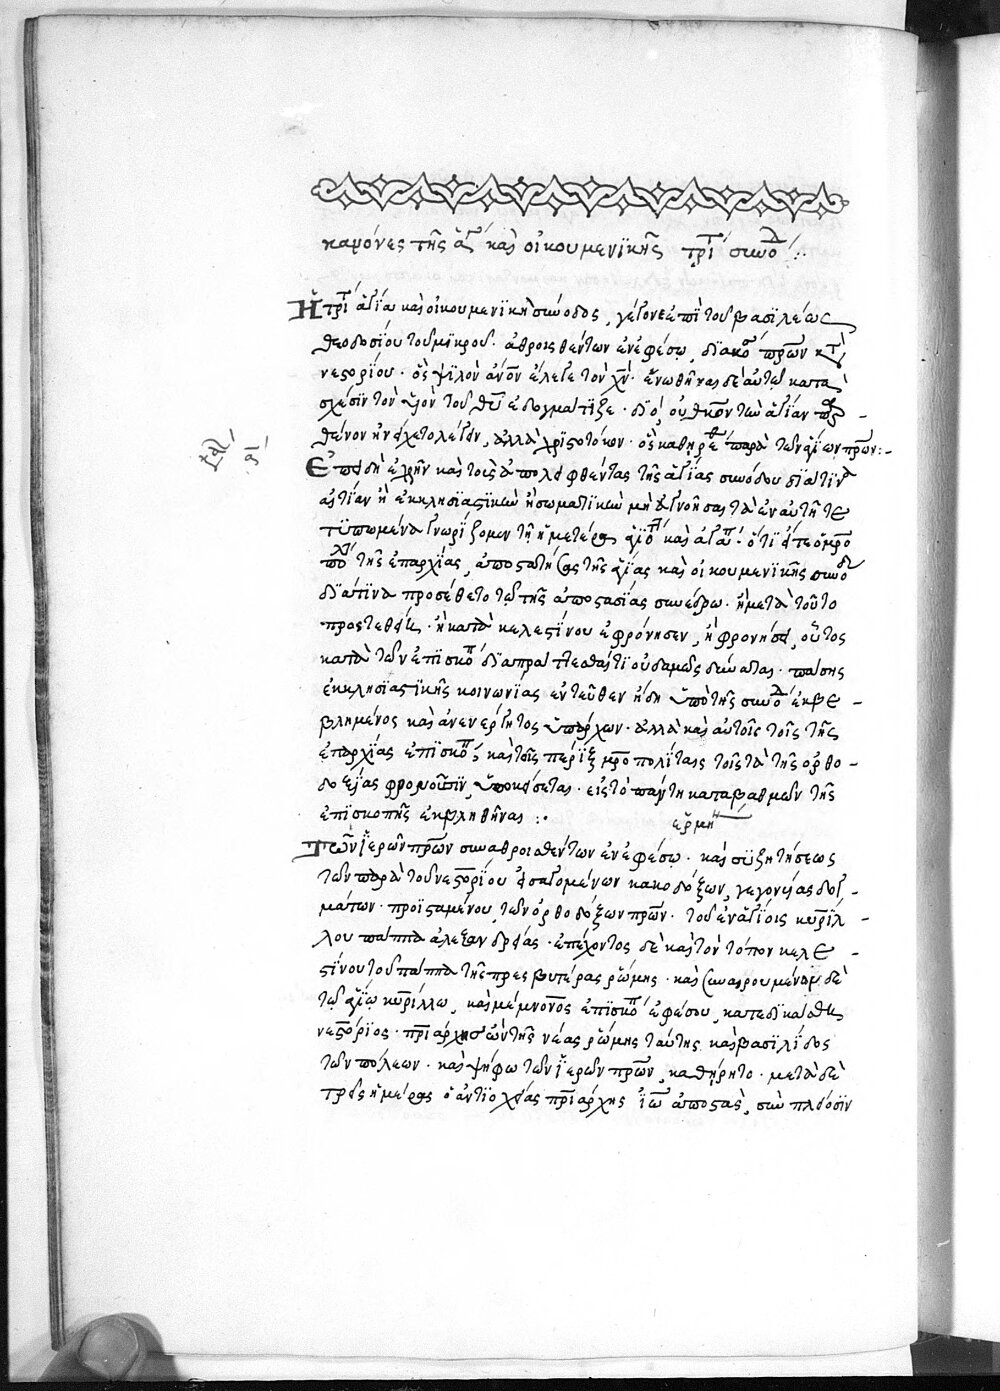 κανόνες τῆς ἁγ καὶ οἰκουμενϊκῆς τρίτ συνόδ :·
Ἡ τρίτ ἁγία καὶ οἰκουμενϊκὴ σύνοδος, γέγονε ἐπὶ τοῦ βασϊλέως
θεοδοσίου τοῦ μϊκροῦ· ἀθροισθέντων ἐν ἐφέσω, διακο πρων κτ
νεστορίου· ὃς ψϊλὸν ἄνον ἔλεγε τὸν χν· ἑνωθῆναι δὲ αὐτῶ κατὰ
σχέσϊν τὸν υἱὸν τοῦ θυ ἐδογμάτϊζε· διὸ, οὐδὲ τὴν ἁγίαν παρ-
θένον ἠνείχετο λέγειν, ἀλλὰ χρϊστοτόκον· ὃς καθηρέθ παρὰ τῶν ἁγίων πρων:-
καν α
Ἐπειδὴ ἐχρῆν καὶ τοὺς ἀπολειφθέντας τῆς ἁγίας συνόδου διά τϊνα
αἰτίαν ἢ ἐκκλησϊαστϊκὴν ἢ σωματϊκὴν μὴ ἀγνοῆσαι τὰ ἐν αὐτῆ τε
τϋπωμένα γνωρίζομεν τῆ ἡμετέρα ἁγϊότ καὶ ἀγάπ· ὅτϊ εἴ τε ὁ μρο
πολ τῆς ἐπαρχίας, ἀποστατήσας τῆς ἁγίας καὶ οἰκουμενϊκῆς συνόδ
διά τϊνα προσέθετο τῶ τῆς ἀποστασίας συνεδρίω· ἢ μετὰ τοῦτο
προστεθείη· ἢ κατὰ κελεστίνου ἐφρόνησεν, ἢ φρονήσει, οὗτος
κατὰ τῶν ἐπϊσκόπ διαπράττεσθαί τϊ οὐδαμῶς δύναται· πάσης
ἐκκλησϊαστϊκῆς κοινωνίας ἐντεῦθεν ἤδη ὑπὸ τῆς συνόδ ἐκβε-
βλημένος καὶ ἀνενέργητος ὑπάρχων· ἀλλὰ καὶ αὐτοῖς τοῖς τῆς
ἐπαρχίας ἐπϊσκόπ, καὶ τοῖς πέριξ μροπολίταις τοῖς τὰ τῆς ὀρθο-
δοξίας φρονοῦσϊν, ὑποκείσεται· εἰς τὸ πάντη καταβαθμῶν τῆς
ἐπϊσκοπῆς ἐκβληθῆναι :·
ἑρμη
Τῶν ἱερῶν πρων συναθροισθέντων ἐν ἐφέσω· καὶ σϋζητήσεως
τῶν παρὰ τοῦ νεστορίου εἰσαγομένων κακοδόξων, γεγονυίας δογ-
μάτων· προϊσταμένου τῶν ὀρθοδόξων πρων· τοῦ ἐν ἁγίοις κυρϊλ-
λου πάππα ἀλεξανδρείας· ἐπέχοντος δὲ καὶ τὸν τόπον κελε-
στίνου τοῦ πάππα τῆς πρεσβυτέρας ῥώμης· καὶ συναιρουμένων δὲ
τῶ ἁγίω κυρίλλω, καὶ μέμνονος ἐπϊσκόπ ἐφέσου, κατεδϊκάσθη
νεστόρϊος· πρϊάρχης ὢν τῆς νέας ῥώμης ταύτης καὶ βασϊλίδος
τῶν πόλεων· καὶ ψήφω τῶν ἱερῶν πρων, καθήρητο· μετὰ δὲ
τρεῖς ἡμέρας ὁ ἀντϊοχείας πρϊάρχης ἰω ἀποστὰς, σὺν πλείοσϊν